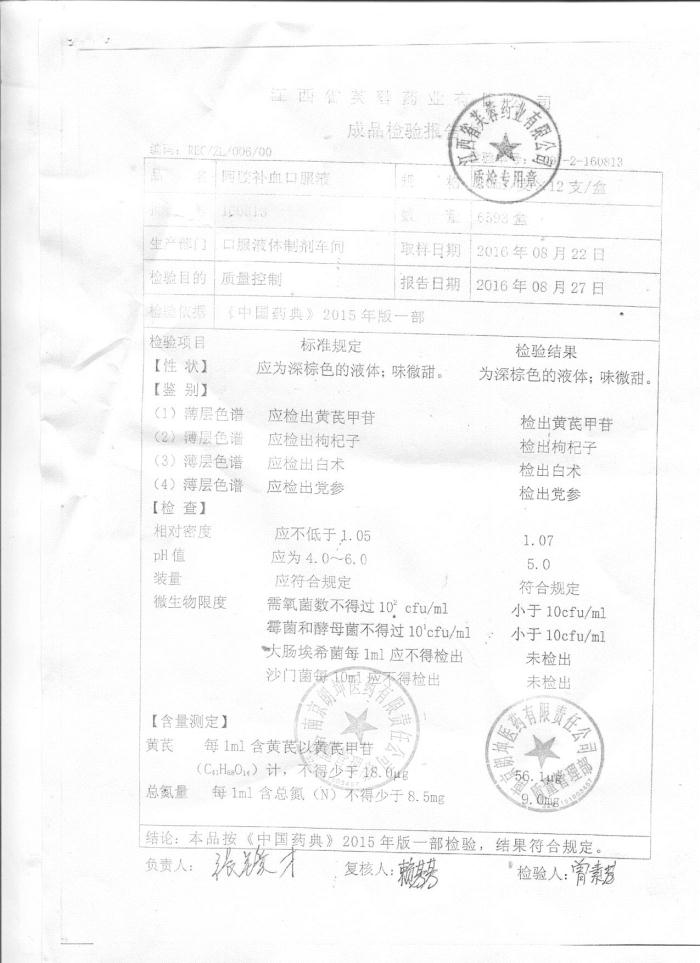 江西省芙蓉药业有限公司
成品检验报告
编码：REC/ZL/006/00 检验 -2-160813
江西省芙蓉药业有限公司
质检专用章
品 名 阿胶补血口服液 规 格 12支/盒
160813 数 量 6593盒
生产部门 口服液体制剂车间 取样日期 2016年08月22日
检验目的 质量控制 报告日期 2016年08月27日
检验依据 《中国药典》2015年版一部
检验项目 标准规定 检验结果
【性 状】 应为深棕色的液体；味微甜。 为深棕色的液体；味微甜。
【鉴 别】
（1）薄层色谱 应检出黄芪甲苷 检出黄芪甲苷
（2）薄层色谱 应检出枸杞子 检出枸杞子
（3）薄层色谱 应检出白术 检出白术
（4）薄层色谱 应检出党参 检出党参
【检 查】
相对密度 应不低于1.05 1.07
pH值 应为4.0～6.0 5.0
装量 应符合规定 符合规定
微生物限度 需氧菌数不得过10² cfu/ml 小于10cfu/ml
霉菌和酵母菌不得过10¹cfu/ml 小于10cfu/ml
大肠埃希菌每1ml应不得检出 未检出
沙门菌每10ml应不得检出 未检出
南京朗坤医药有限责任公司
南京朗坤医药有限责任公司
质量管理部
【含量测定】
黄芪 每1ml含黄芪以黄芪甲苷
（C₄₁H₆₈O₁₄）计，不得少于18.0μg 56.1μg
总氮量 每1ml含总氮（N）不得少于8.5mg 9.0mg
结论：本品按《中国药典》2015年版一部检验，结果符合规定。
负责人： 复核人：赖芸芸 检验人：曾素芳